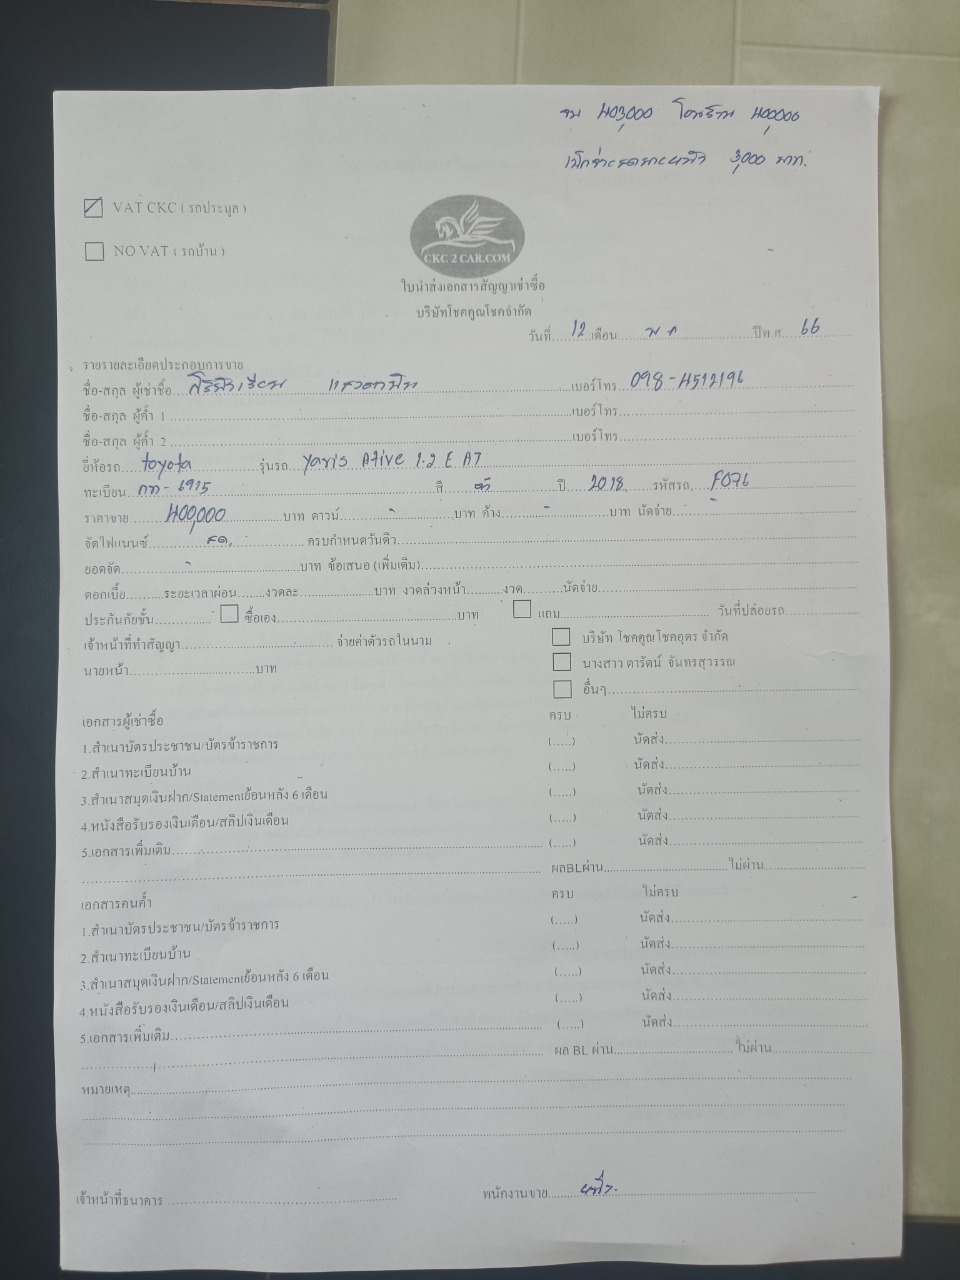 จบ 403,000 โอนร้าน 400,000
เบิกจ่าย 3,000 บาท.
VAT CKC ( รถประมูล )
NO VAT ( รถบ้าน )
CKC 2 CAR.COM
ใบนำส่งเอกสารสัญญาเช่าซื้อ
บริษัทโชคคูณโชคจำกัด
วันที่ 12 เดือน พ.ค ปีพ.ศ. 66
รายรายละเอียดประกอบการขาย
ชื่อ-สกุล ผู้เช่าซื้อ เบอร์โทร 098-4512196
ชื่อ-สกุล ผู้ค้ำ 1 เบอร์โทร
ชื่อ-สกุล ผู้ค้ำ 2 เบอร์โทร
ยี่ห้อรถ toyota รุ่นรถ yaris Ative 1.2 E AT
ทะเบียน กท - 6915 สี ปี 2018 รหัสรถ F076
ราคาขาย 400,000 บาท ดาวน์ - บาท ค้าง - บาท นัดจ่าย -
จัดไฟแนนซ์ สด. ครบกำหนดวันดิว
ยอดจัด - บาท ข้อเสนอ (เพิ่มเติม)
ดอกเบี้ย ระยะเวลาผ่อน งวดละ บาท งวดล่วงหน้า งวด นัดจ่าย
ประกันภัยชั้น ซื้อเอง บาท แถม วันที่ปล่อยรถ
เจ้าหน้าที่ทำสัญญา จ่ายค่าตัวรถในนาม บริษัท โชคคูณโชคอุตร จำกัด
นายหน้า บาท นางสาว ดารัตน์ จันทรสุวรรณ
อื่นๆ
เอกสารผู้เช่าซื้อ ครบ ไม่ครบ
1.สำเนาบัตรประชาชน/บัตรข้าราชการ (.....) นัดส่ง
2.สำเนาทะเบียนบ้าน (.....) นัดส่ง
3.สำเนาสมุดเงินฝาก/Statementย้อนหลัง 6 เดือน (.....) นัดส่ง
4.หนังสือรับรองเงินเดือน/สลิปเงินเดือน (.....) นัดส่ง
5.เอกสารเพิ่มเติม (.....) นัดส่ง
ผลBLผ่าน ไม่ผ่าน
เอกสารคนค้ำ ครบ ไม่ครบ
1.สำเนาบัตรประชาชน/บัตรข้าราชการ (.....) นัดส่ง
2.สำเนาทะเบียนบ้าน (.....) นัดส่ง
3.สำเนาสมุดเงินฝาก/Statementย้อนหลัง 6 เดือน (.....) นัดส่ง
4.หนังสือรับรองเงินเดือน/สลิปเงินเดือน (.....) นัดส่ง
5.เอกสารเพิ่มเติม (.....) นัดส่ง
ผล BL ผ่าน ไม่ผ่าน
หมายเหตุ
เจ้าหน้าที่ธนาคาร พนักงานขาย